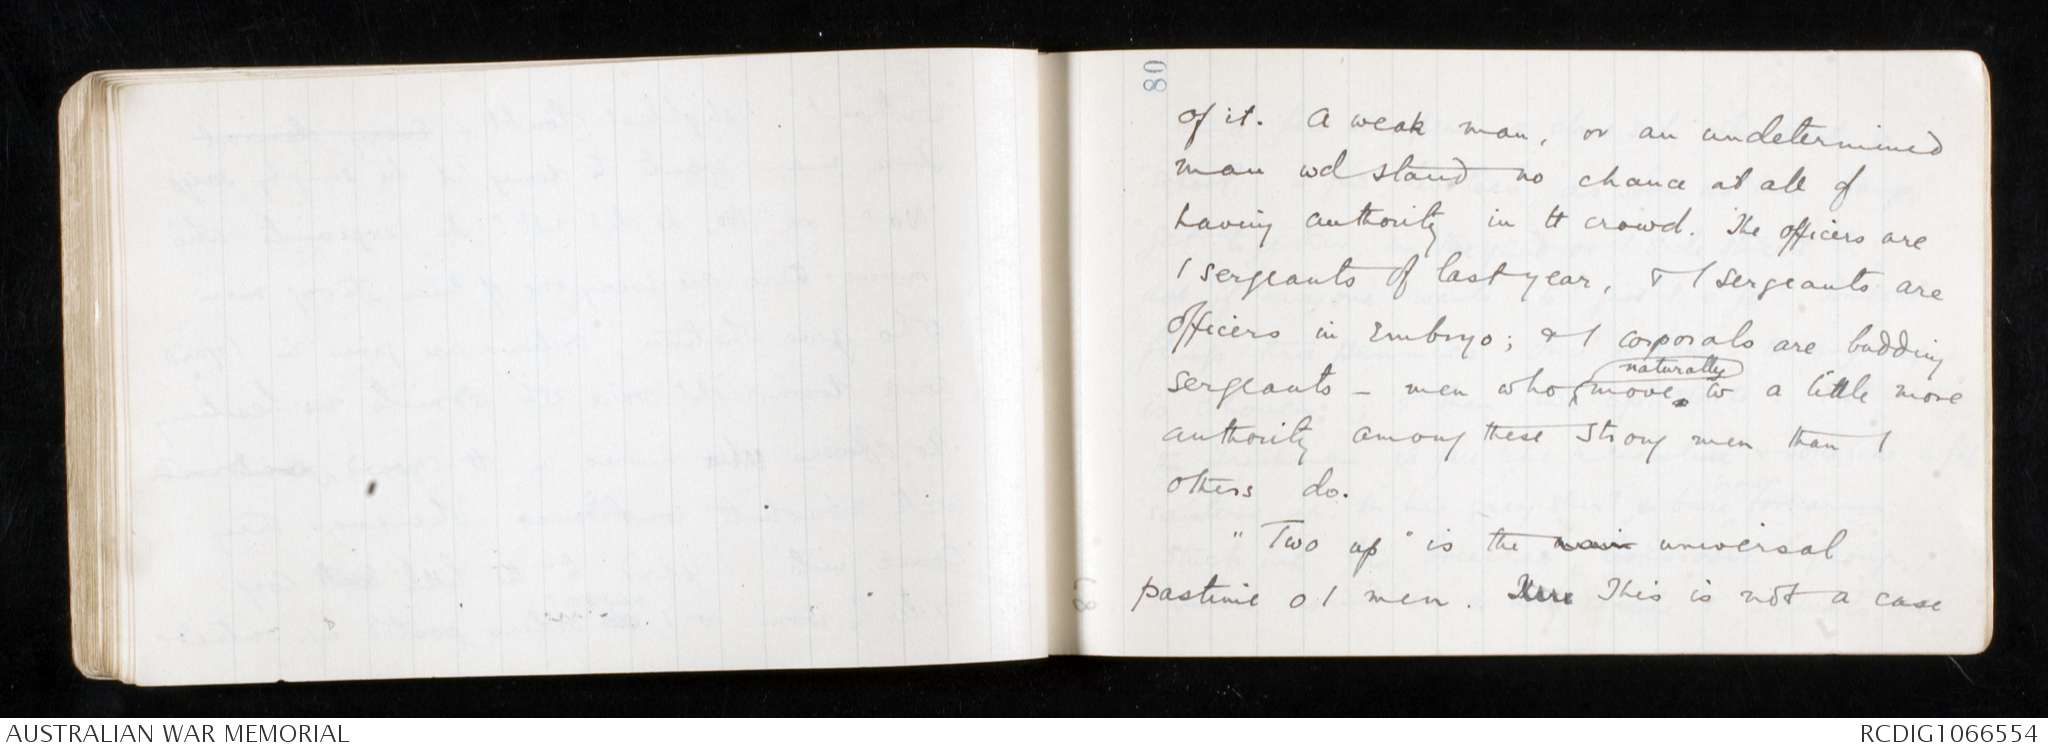 80
of it. A weak man, or an undetermined
man wd stand no chance at all of
having authority in tt crowd. The officers are
/ sergeants of last year, & / sergeants are
officers in Embryo; & / corporals are budding
naturally
sergeants – men who move to a little more
authority among these strong men than /
others do.
"Two up" is the main universal
pastime o / men. Here This is not a case
AUSTRALIAN WAR MEMORIAL
RCDIG1066554